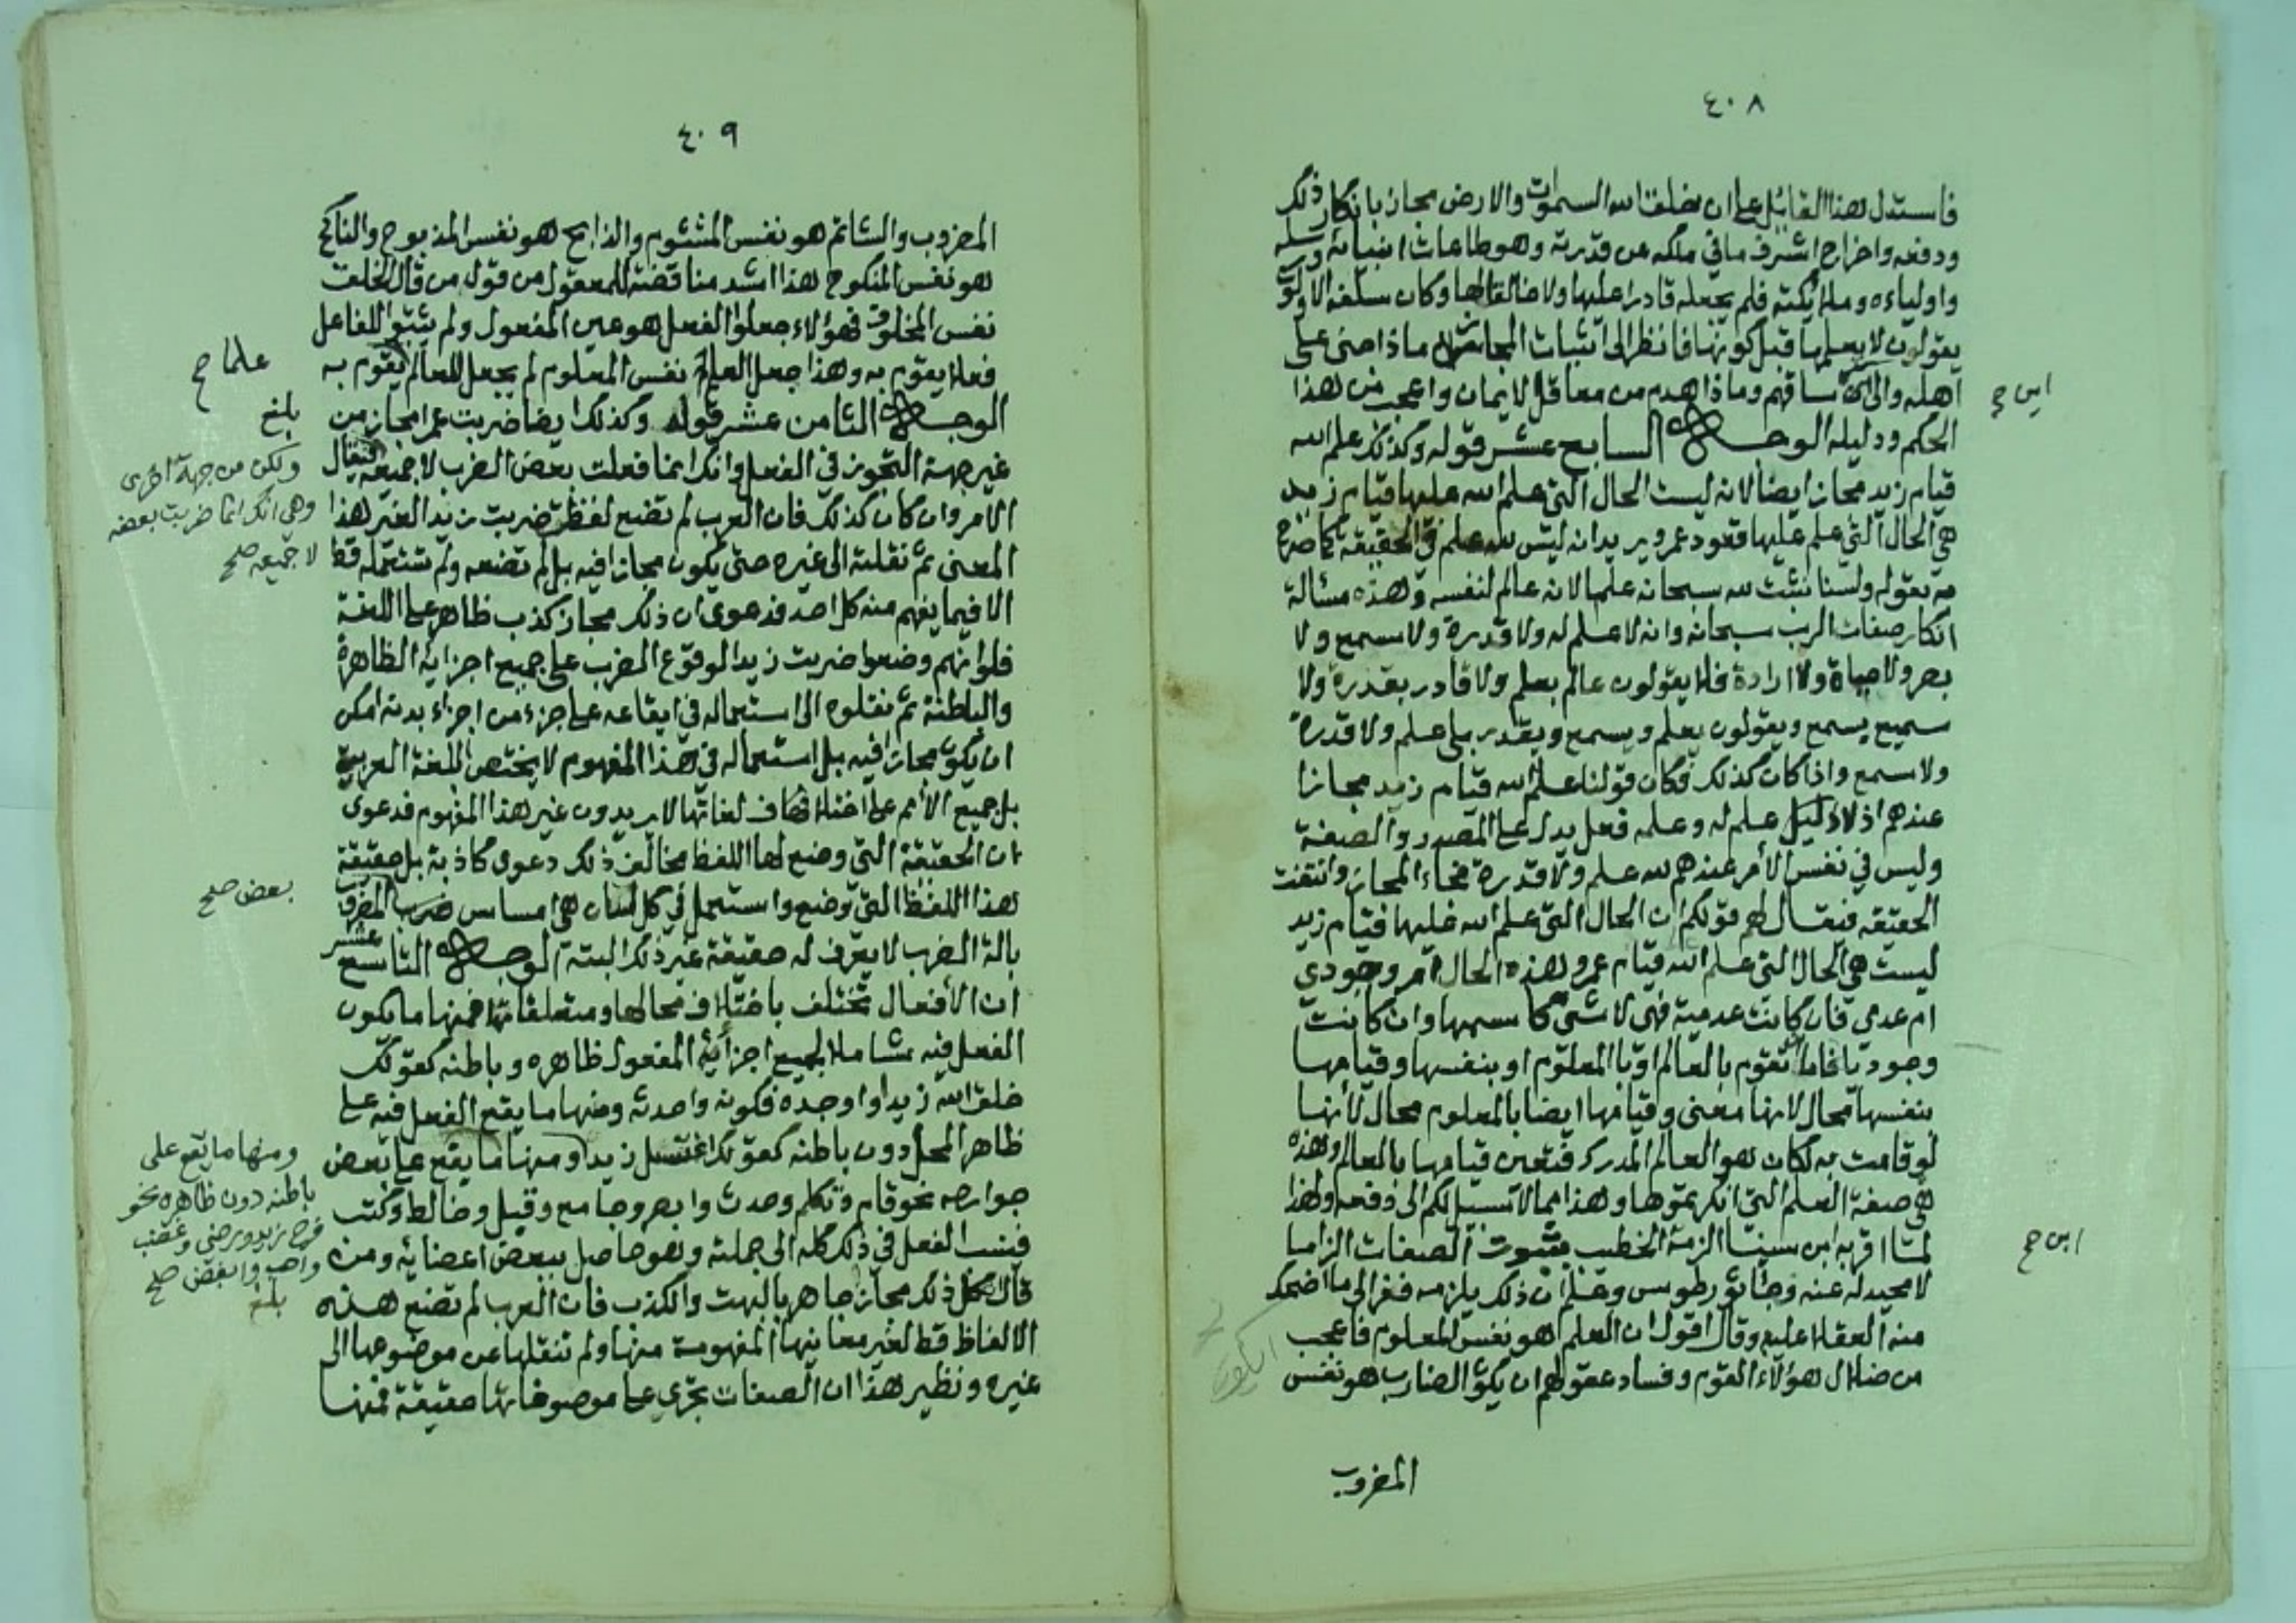 ٤٠٨
فاستدل هذا القائل على ان خلق الله السموات والارض مجاز بانكار ذلك
ودفعه واخراج اشرف ما في ملكه عن قدرته وهو طاعات انبيائه ورسله
واولياءه وملائكته فلم يجعله قادرا عليها ولا خالقا لها وكان سلفه الاولون
يقولون لا يعلمها قبل كونها فانظر الى اثبات المجاز ماذا جنى على
اهله والى اين ساقهم وماذا هدم من معاقل الايمان واعجب من هذا
اين ح
الحكم ودليله الوجه السابع عشر قوله وكذلك علم الله
قيام زيد مجاز ايضا لانه ليست الحال التي علم الله عليها قيام زيد
هي الحال التي علم عليها قعود عمرو يريد انه ليس لله علم في الحقيقة كما صرح
به بقوله ولسنا نثبت لله سبحانه علما لانه عالم لنفسه وهذه مسألة
انكار صفات الرب سبحانه وانه لا علم له ولا قدرة ولا سمع ولا
بصر ولا حياة ولا ارادة فلا يقولون عالم بعلم ولا قادر بقدرة ولا
سميع بسمع ويقولون يعلم ويسمع ويقدر بلا علم ولا قدرة
ولا سمع واذا كان كذلك فكان قولنا علم الله قيام زيد مجازا
عندهم اذ لا دليل علم له وعلمه فعل يدل على المصدر والصفة
وليس في نفس الأمر عندهم لله علم ولا قدرة فجاء المجاز وانتفت
الحقيقة فيقال لهم قولكم ان الحال التي علم الله عليها قيام زيد
ليست هي الحال التي علم الله قيام عمرو هذه الحال امر وجودي
ام عدمي فان كانت عدمية فهي لا شئ كاسمها وان كانت
وجودية فاما ان تقوم بالعالم او بالمعلوم او بنفسها وقيامها
بنفسها محال لانها معنى وقيامها ايضا بالمعلوم محال لأنها
لو قامت به لكان هو العالم المدرك فتعين قيامها بالعالم وهذه
هي صفة العلم التي انكرتموها وهذا مما لا سبيل لكم الى دفعه ولهذا
لما اقر به ابن سينا الزمه الخطيب بثبوت الصفات الزاما
ابن ح
لا محيد له عنه وجاء ثور طوس وعلم ان ذلك يلزمه ففر الى ما اضحك
منه العقلاء عليه وقال اقول ان العلم هو نفس المعلوم فاعجب
من ضلال هؤلاء القوم وفساد عقولهم ان يكون الضارب هو نفس
المضروب
٤٠٩
المضروب والشاتم هو نفس المشتوم والذابح هو نفس المذبوح والناكح
هو نفس المنكوح هذا اشد مناقضة للمعقول من قول من قال الخلق
نفس المخلوق فهؤلاء جعلوا الفعل هو عين المفعول ولم يثبتوا للفاعل
فعلا يقوم به وهذا جعل العلم نفس المعلوم لم يجعل للعالم يقوم به
علما ح
الوجه الثامن عشر قوله وكذلك ايضا ضربت عمرا مجاز من
بلغ
غير جهة التجوز في الفعل وانك انما فعلت بعض الضرب لا جميعه فيقال
ولكن من جهة اخرى
وهي انك انما ضربت بعضه
لا جميعه صح
الامر وان كان كذلك فان العرب لم تضع لفظ ضربت زيدا لغير هذا
المعنى ثم نقلته الى غيره حتى يكون مجازا فيه بل لم تضعه ولم تستعمله قط
الا فيما يفهم منه كل احد فدعوى ان ذلك مجاز كذب ظاهر على اللغة
فلو انهم وضعوا ضربت زيدا لوقوع الضرب على جميع اجزائه الظاهرة
والباطنة ثم نقلوه الى استعماله في ايقاعه على جزء من اجزاء بدنه امكن
ان يكون مجازا فيه بل استعماله في هذا المفهوم لا يختص اللغة العربية
بل جميع الأمم على اختلاف لغاتها لا يريدون غير هذا المفهوم فدعوى
ان الحقيقة التي وضع لها اللفظ مخالف ذلك دعوى كاذبة بل حقيقة
هذا اللفظ التي وضع واستعمل في كل لسان هي امساس المضروب
بعض صح
بالة الضرب لا يعرف له حقيقة غير ذلك البتة الوجه التاسع عشر
ان الأفعال تختلف باختلاف محالها ومتعلقاتها فمنها ما يكون
الفعل فيه شاملا لجميع اجزائه المفعول ظاهره وباطنه كقولك
خلق الله زيدا او اوجده فكونه واحدثه ومنها ما يقع الفعل فيه على
ظاهر المحل دون باطنه كقولك اغتسل زيد او منها ما يقع على بعض
ومنها ما يقع على
باطنه دون ظاهره نحو
فرح زيد ورضي وغضب
واحب وابغض صح
بلغ
جوارحه نحو قام وتكلم وحدث وابصر وجامع وقبل وخالط وكتب
فينسب الفعل في ذلك كله الى جملته وهو حاصل ببعض اعضائه ومن
قال كل ذلك مجاز جاهر بالبهت والكذب فان العرب لم تضع هذه
الالفاظ قط لغير معانيها المفهومة منها ولم تنقلها عن موضوعها الى
غيره ونظير هذا ان الصفات تجري على موصوفاتها حقيقة فمنها